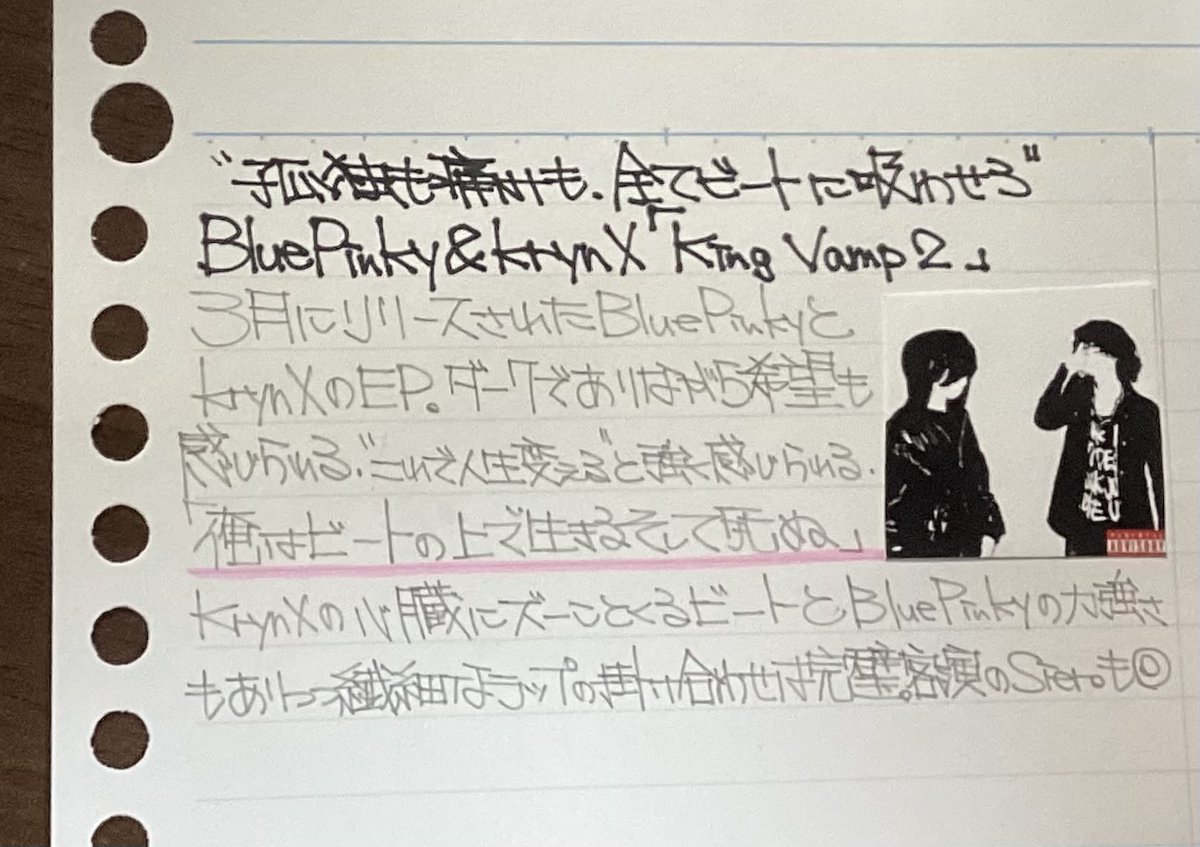 "孤独も痛みも、全てビートに吸わせろ"
BluePinky&krynX「King Vamp 2」
3月にリリースされたBluePinkyと
krynXのEP。ダークでありながら希望も
感じられる。"これで人生変える"と強く感じられる。
「俺はビートの上で生まるそして死ぬ」
krynXの心臓にズーンとくるビートとBluePinkyの力強さ
もありつつ繊細なラップの掛け合わせは完璧。客演のSieroも◎
ADVISORY